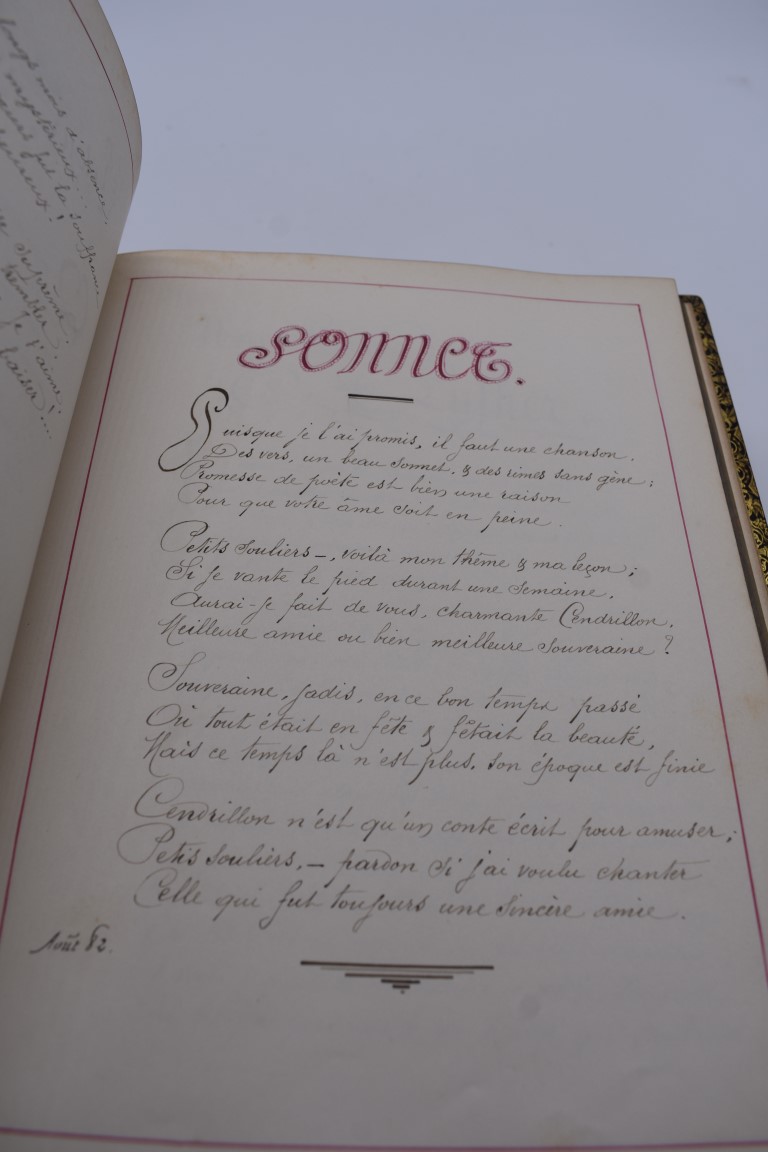 mois d'absence,
mystérieux...
fut la souffrance
!
suprême,
trembler,
je t'aime,
baiser!...
SONNET.
Puisque je l'ai promis, il faut une chanson.
Des vers, un beau sonnet, & des rimes sans gêne;
Promesse de poète est bien une raison
Pour que votre âme soit en peine.
Petits souliers –, voilà mon thême & ma leçon;
Si je vante le pied durant une semaine,
Aurai-je fait de vous, charmante Cendrillon,
Meilleure amie ou bien meilleure souveraine?
Souveraine, jadis, en ce bon temps passé
Où tout était en fête & fêtait la beauté,
Mais ce temps là n'est plus, son époque est finie
Cendrillon n'est qu'un conte écrit pour amuser;
Petis souliers, – pardon si j'ai voulu chanter
Celle qui fut toujours une sincère amie.
Août 82.